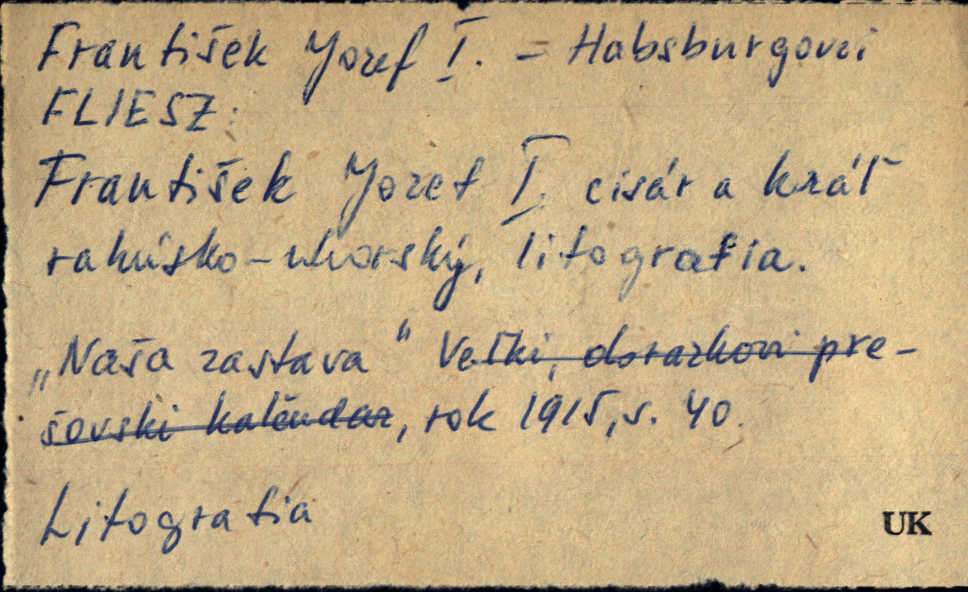 František Jozef I. - Habsburgovci
FLIESZ:
František Jozef I. cisár a kráľ
rakúsko-uhorský, litografia.
„Naša zastava" Veľki, dorazkovi pre-
šovski kalendar, rok 1915, s. 40.
Litografia
UK